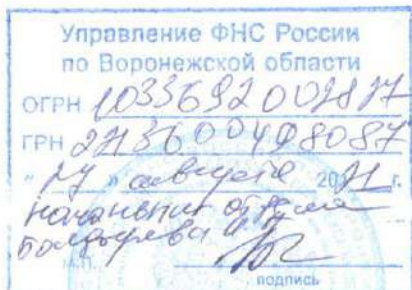 Управление ФНС России
по Воронежской области
ОГРН
ГРН 2213600498087
" 27 " августа 2021 г.
начальник отдела
Болдырева
М.П.
подпись